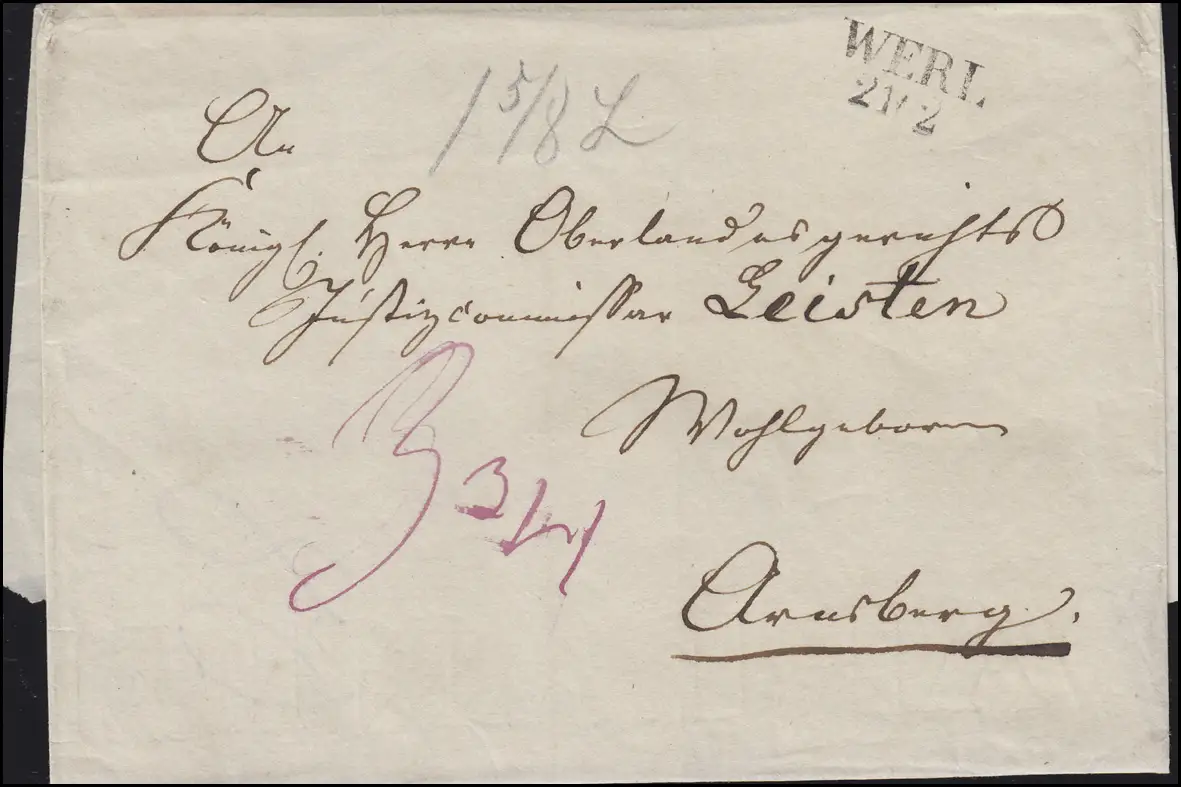 WERL
21/2
1 5/8 L
An
Königl. Herrn Oberlandesgerichts
Justizcommissar Leisten
Wohlgeboren
Arnsberg.
3 3/4